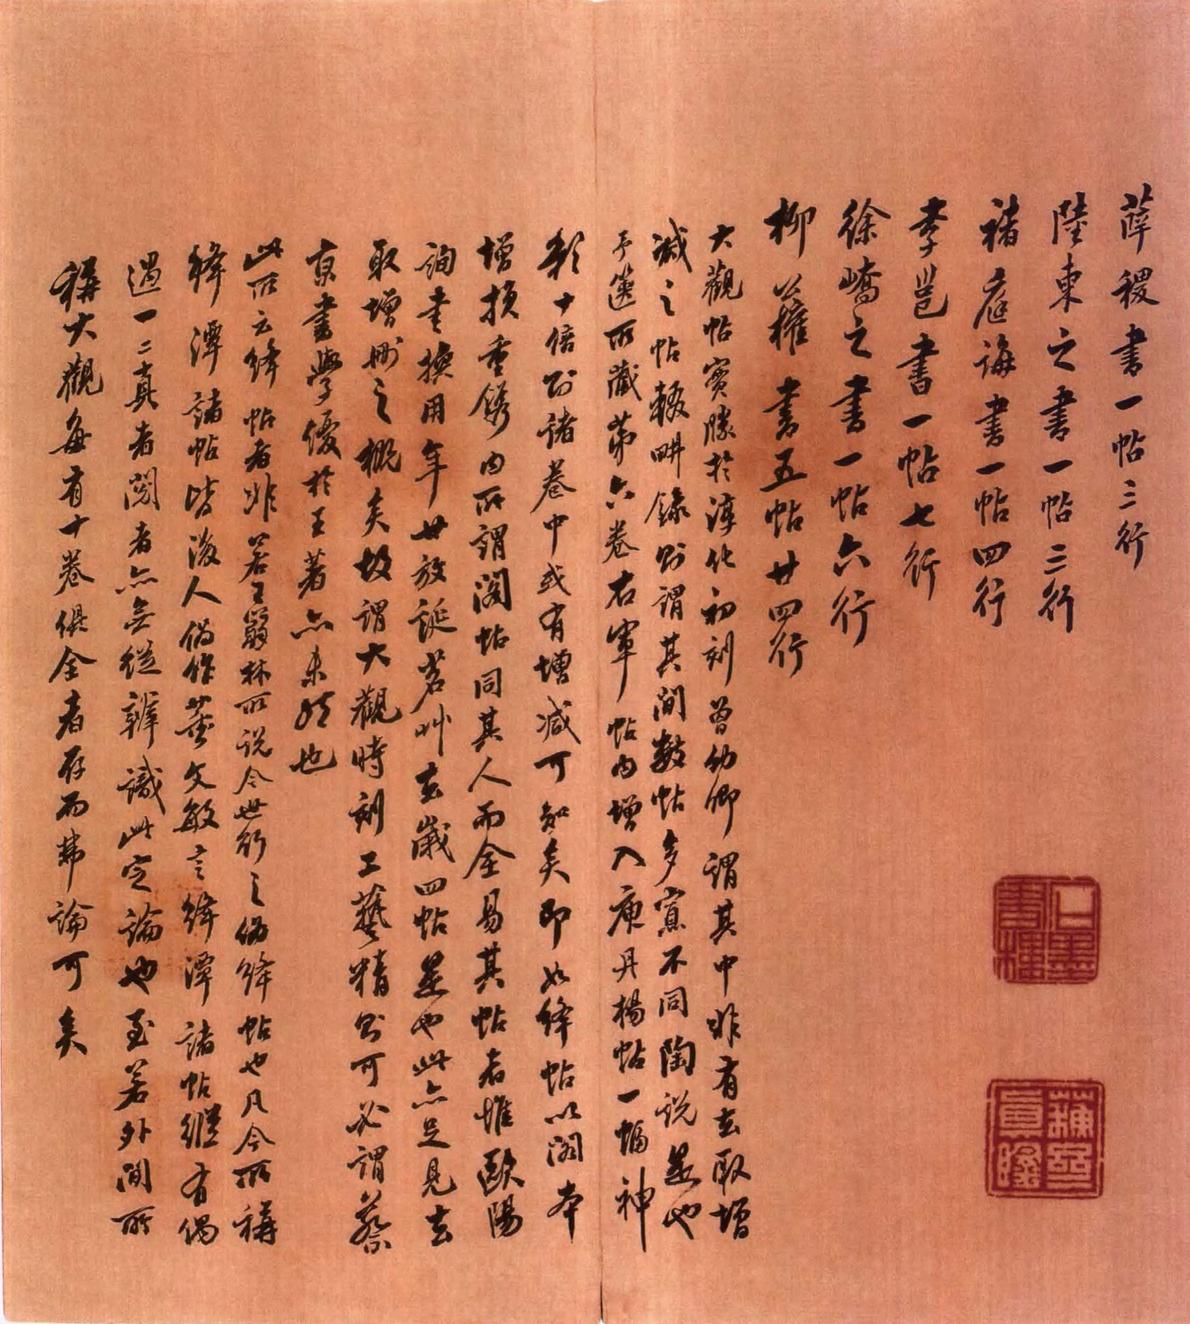 薛稷書一帖三行
陸柬之書一帖三行
褚庭誨書一帖四行
李邕書一帖七行
徐嶠之書一帖六行
柳公權書五帖廿四行
大觀帖實勝於淳化初刻曾幼卿謂其中非有去取增
減之帖輟畊錄則謂其間數帖多寡不同陶說是也
予篋所藏第六卷右軍帖內增入庾丹楊帖一幅神
彩十倍則諸卷中或有增減可知矣即如絳帖以閣本
增損重鐫內所謂閣帖同其人而全易其帖者惟歐陽
詢書換用年廿放誕若卅去歲四帖是也此亦足見去
取增刪之概矣故謂大觀時刻工藝精則可必謂蔡
京書學優於王著亦未然也
此所云絳帖者非若王翁林所說今世所行之偽絳帖也凡今所稱
絳潭諸帖皆後人偽作董文敏言絳潭諸帖繼有偶
遇一二真者閱者亦無從辨識此定論也至若外間所
稱大觀每有十卷俱全者存而弗論可矣